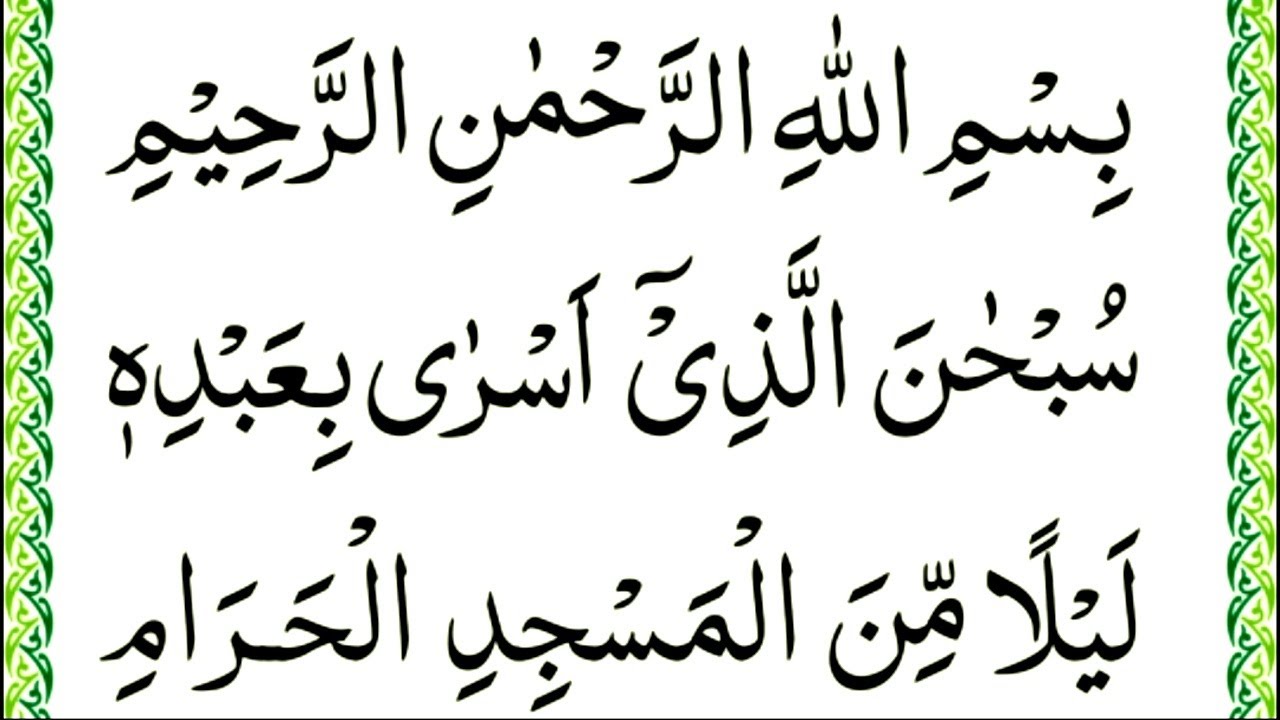 بِسْمِ اللّٰهِ الرَّحْمٰنِ الرَّحِيْمِ
سُبْحٰنَ الَّذِیْۤ اَسْرٰی بِعَبْدِهٖ
لَيْلًا مِّنَ الْمَسْجِدِ الْحَرَامِ